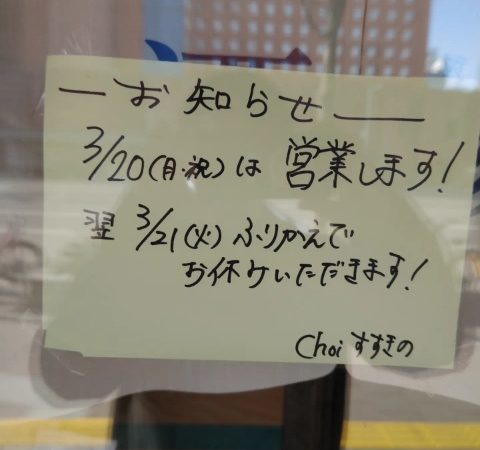 お知らせ
3/20(月・祝)は 営業します!
翌 3/21(火)ふりかえで
お休みいただきます!
Choi すすきの